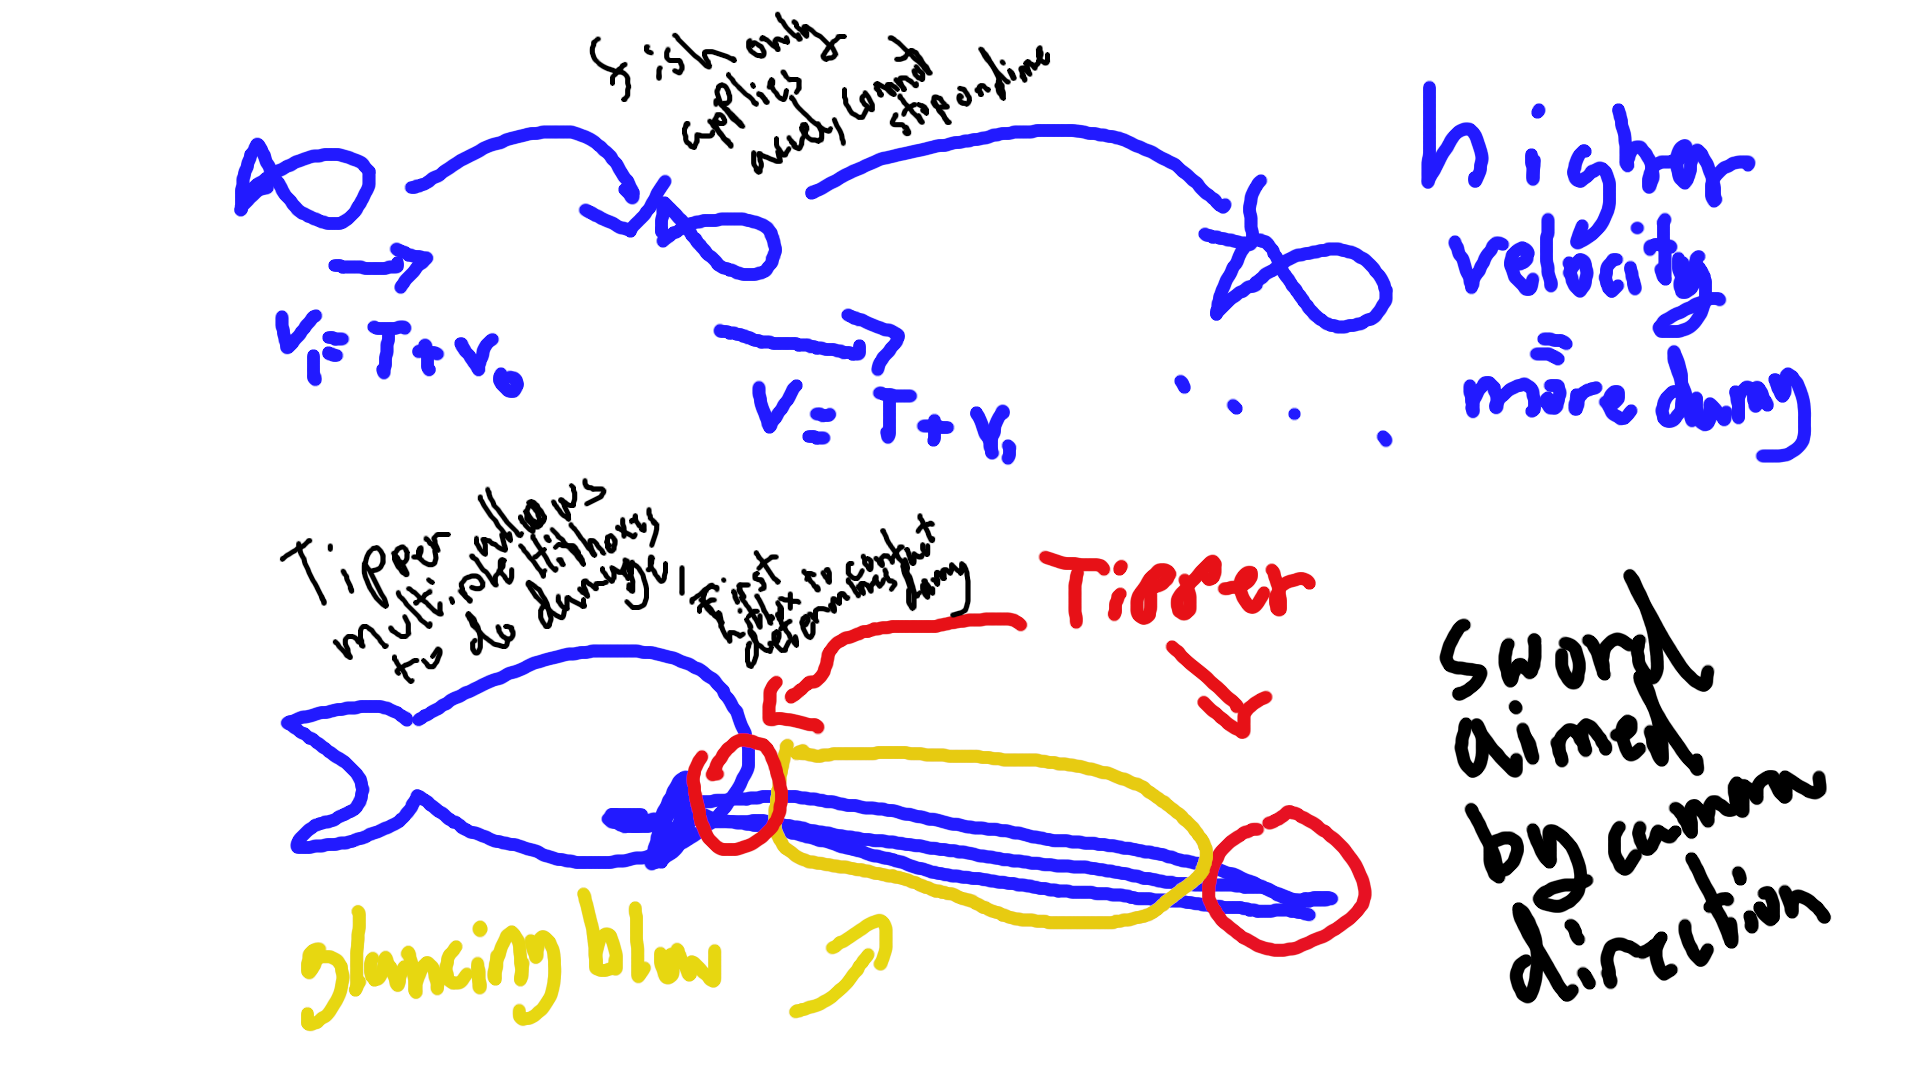 fish only
applies
accel, cannot
stop on dime
V₁ = T + V₀
V = T + V₁
....
higher
velocity
=
more damg
Tipper allows
multiple Hitboxes
to do damage,
First
hitbox to contact
determines damg
Tipper
glancing blow
sword
aimed
by camera
direction